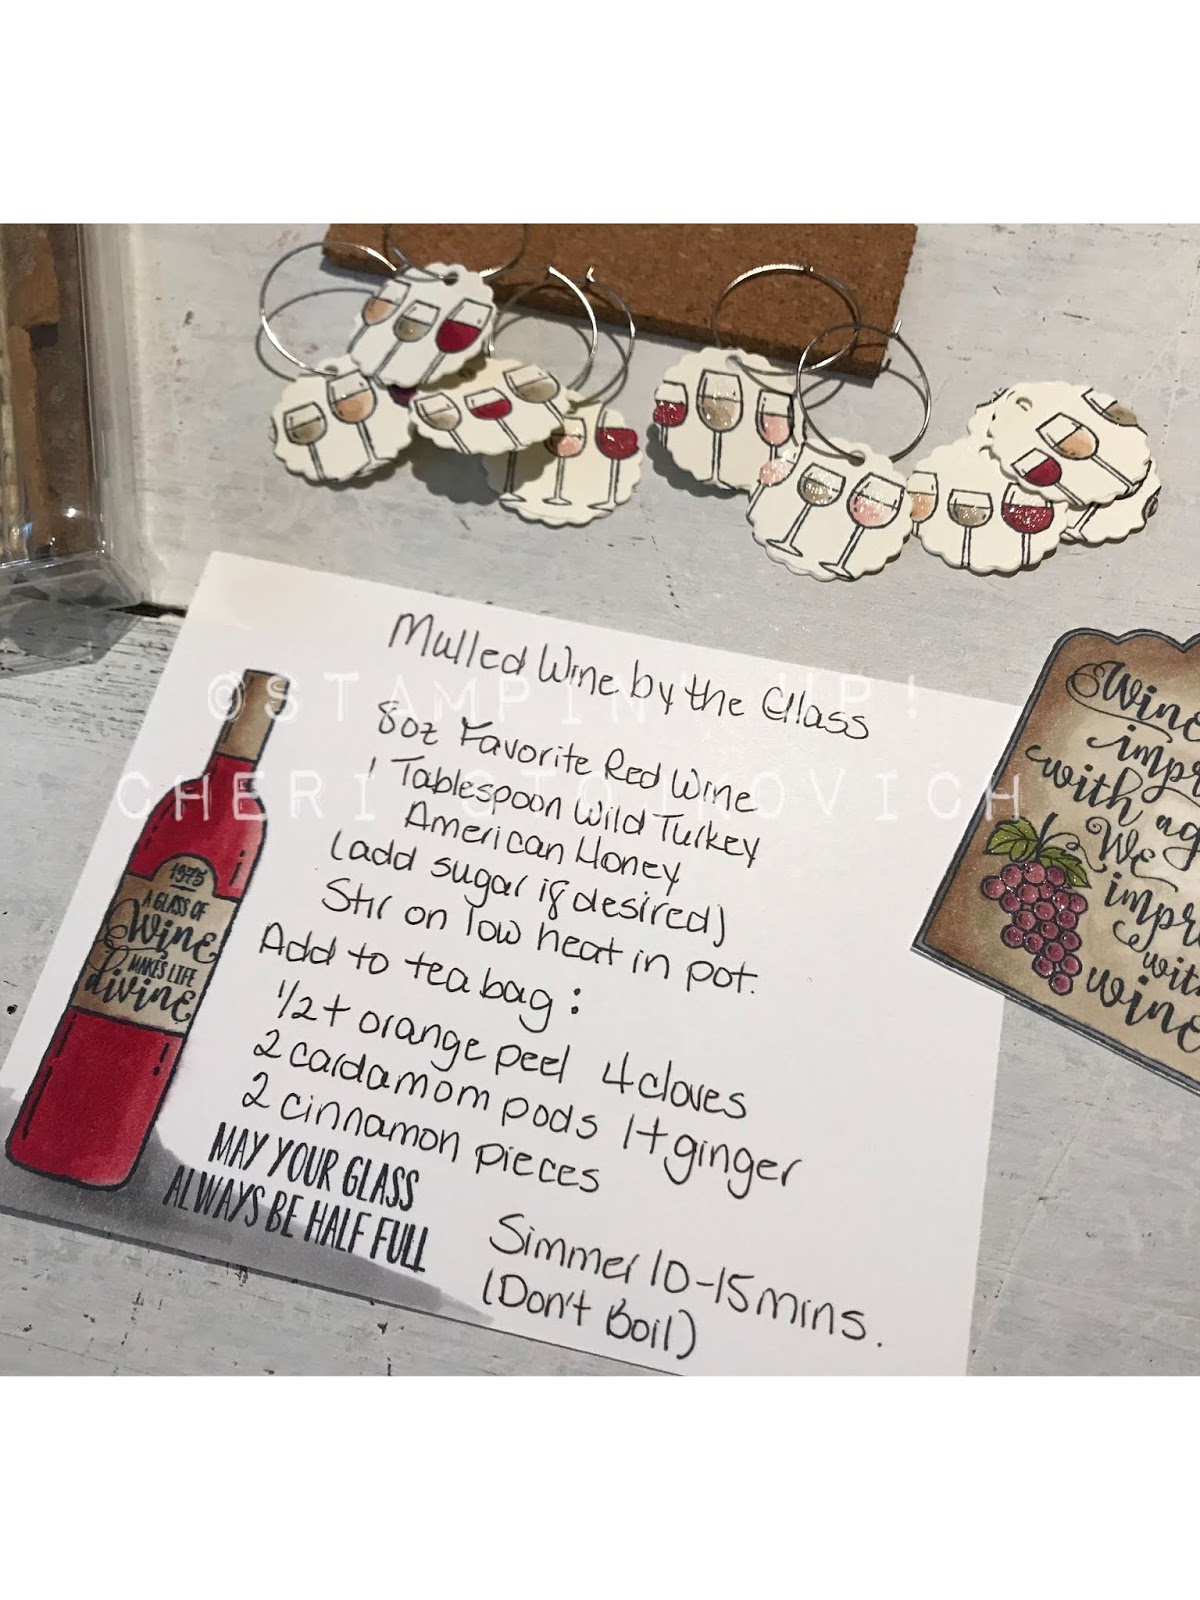 Mulled Wine by the Glass
8oz Favorite Red Wine
1 Tablespoon Wild Turkey
American Honey
(add sugar if desired)
Stir on low heat in pot.
Add to tea bag:
1/2 t orange peel 4 cloves
2 cardamom pods 1 t ginger
2 cinnamon pieces
MAY YOUR GLASS
ALWAYS BE HALF FULL
Simmer 10-15 mins.
(Don't Boil)
1975
A GLASS OF
Wine
MAKES LIFE
divine
Wine
with
We
wine
©STAMPIN' UP!
CHERI STOJKOVICH